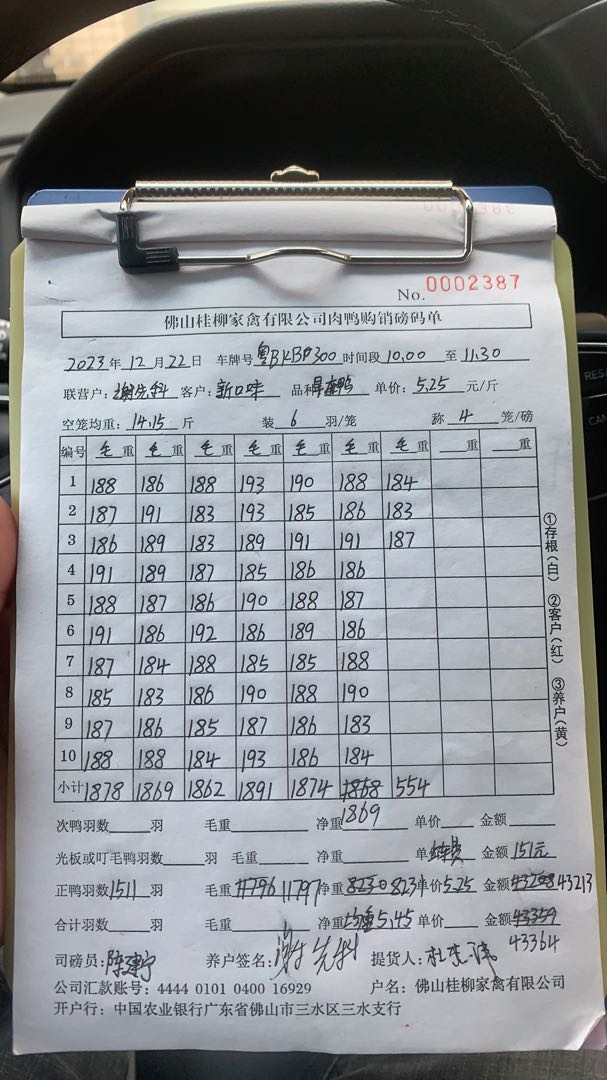 No. 0002387
佛山桂柳家禽有限公司肉鸭购销磅码单
2023年12月22日 车牌号 粤BKBP300 时间段 10.00 至 11.30
联营户：谢先科 客户：新口味 品种 单价：5.25 元/斤
空笼均重：14.15 斤 装 6 羽/笼 称 4 笼/磅
编号 毛重 毛重 毛重 毛重 毛重 毛重 毛重 重 重
1 188 186 188 193 190 188 184
2 187 191 183 193 185 186 183
3 186 189 183 189 191 191 187
4 191 189 187 185 186 186
5 188 187 186 190 188 187
6 191 186 192 186 189 186
7 187 184 188 185 185 188
8 185 183 186 190 188 190
9 187 186 185 187 186 183
10 188 188 184 193 186 184
小计 1878 1869 1862 1891 1874 1868 554
1869
次鸭羽数 羽 毛重 净重 单价 金额
光板或叮毛鸭羽数 羽 毛重 净重 单 金额 151元
正鸭羽数 1511 羽 毛重 11796 11797 净重 8230 8231 单价 5.25 金额 43208 43213
合计羽数 羽 毛重 净重 均重 5.45 单价 金额 43359
43364
司磅员： 养户签名：谢先科 提货人：
公司汇款账号：4444 0101 0400 16929 户名：佛山桂柳家禽有限公司
开户行：中国农业银行广东省佛山市三水区三水支行
①存根(白) ②客户(红) ③养户(黄)